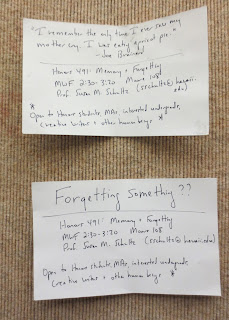 "I remember the only time I ever saw my
mother cry. I was eating apricot pie."
- Joe Brainard
Honors 491: Memory + Forgetting
MWF 2:30-3:20 Moore 108
Prof. Susan M. Schultz (sschultz@hawaii.edu)
*
Open to Honors students, MAs, interested undergrads,
creative writers + other human beings *
Forgetting Something??
Honors 491: Memory + Forgetting
MWF 2:30-3:20 Moore 108
Prof. Susan M. Schultz (sschultz@hawaii.edu)
Open to Honors students, MAs, interested undergrads
creative writers + other human beings *
*